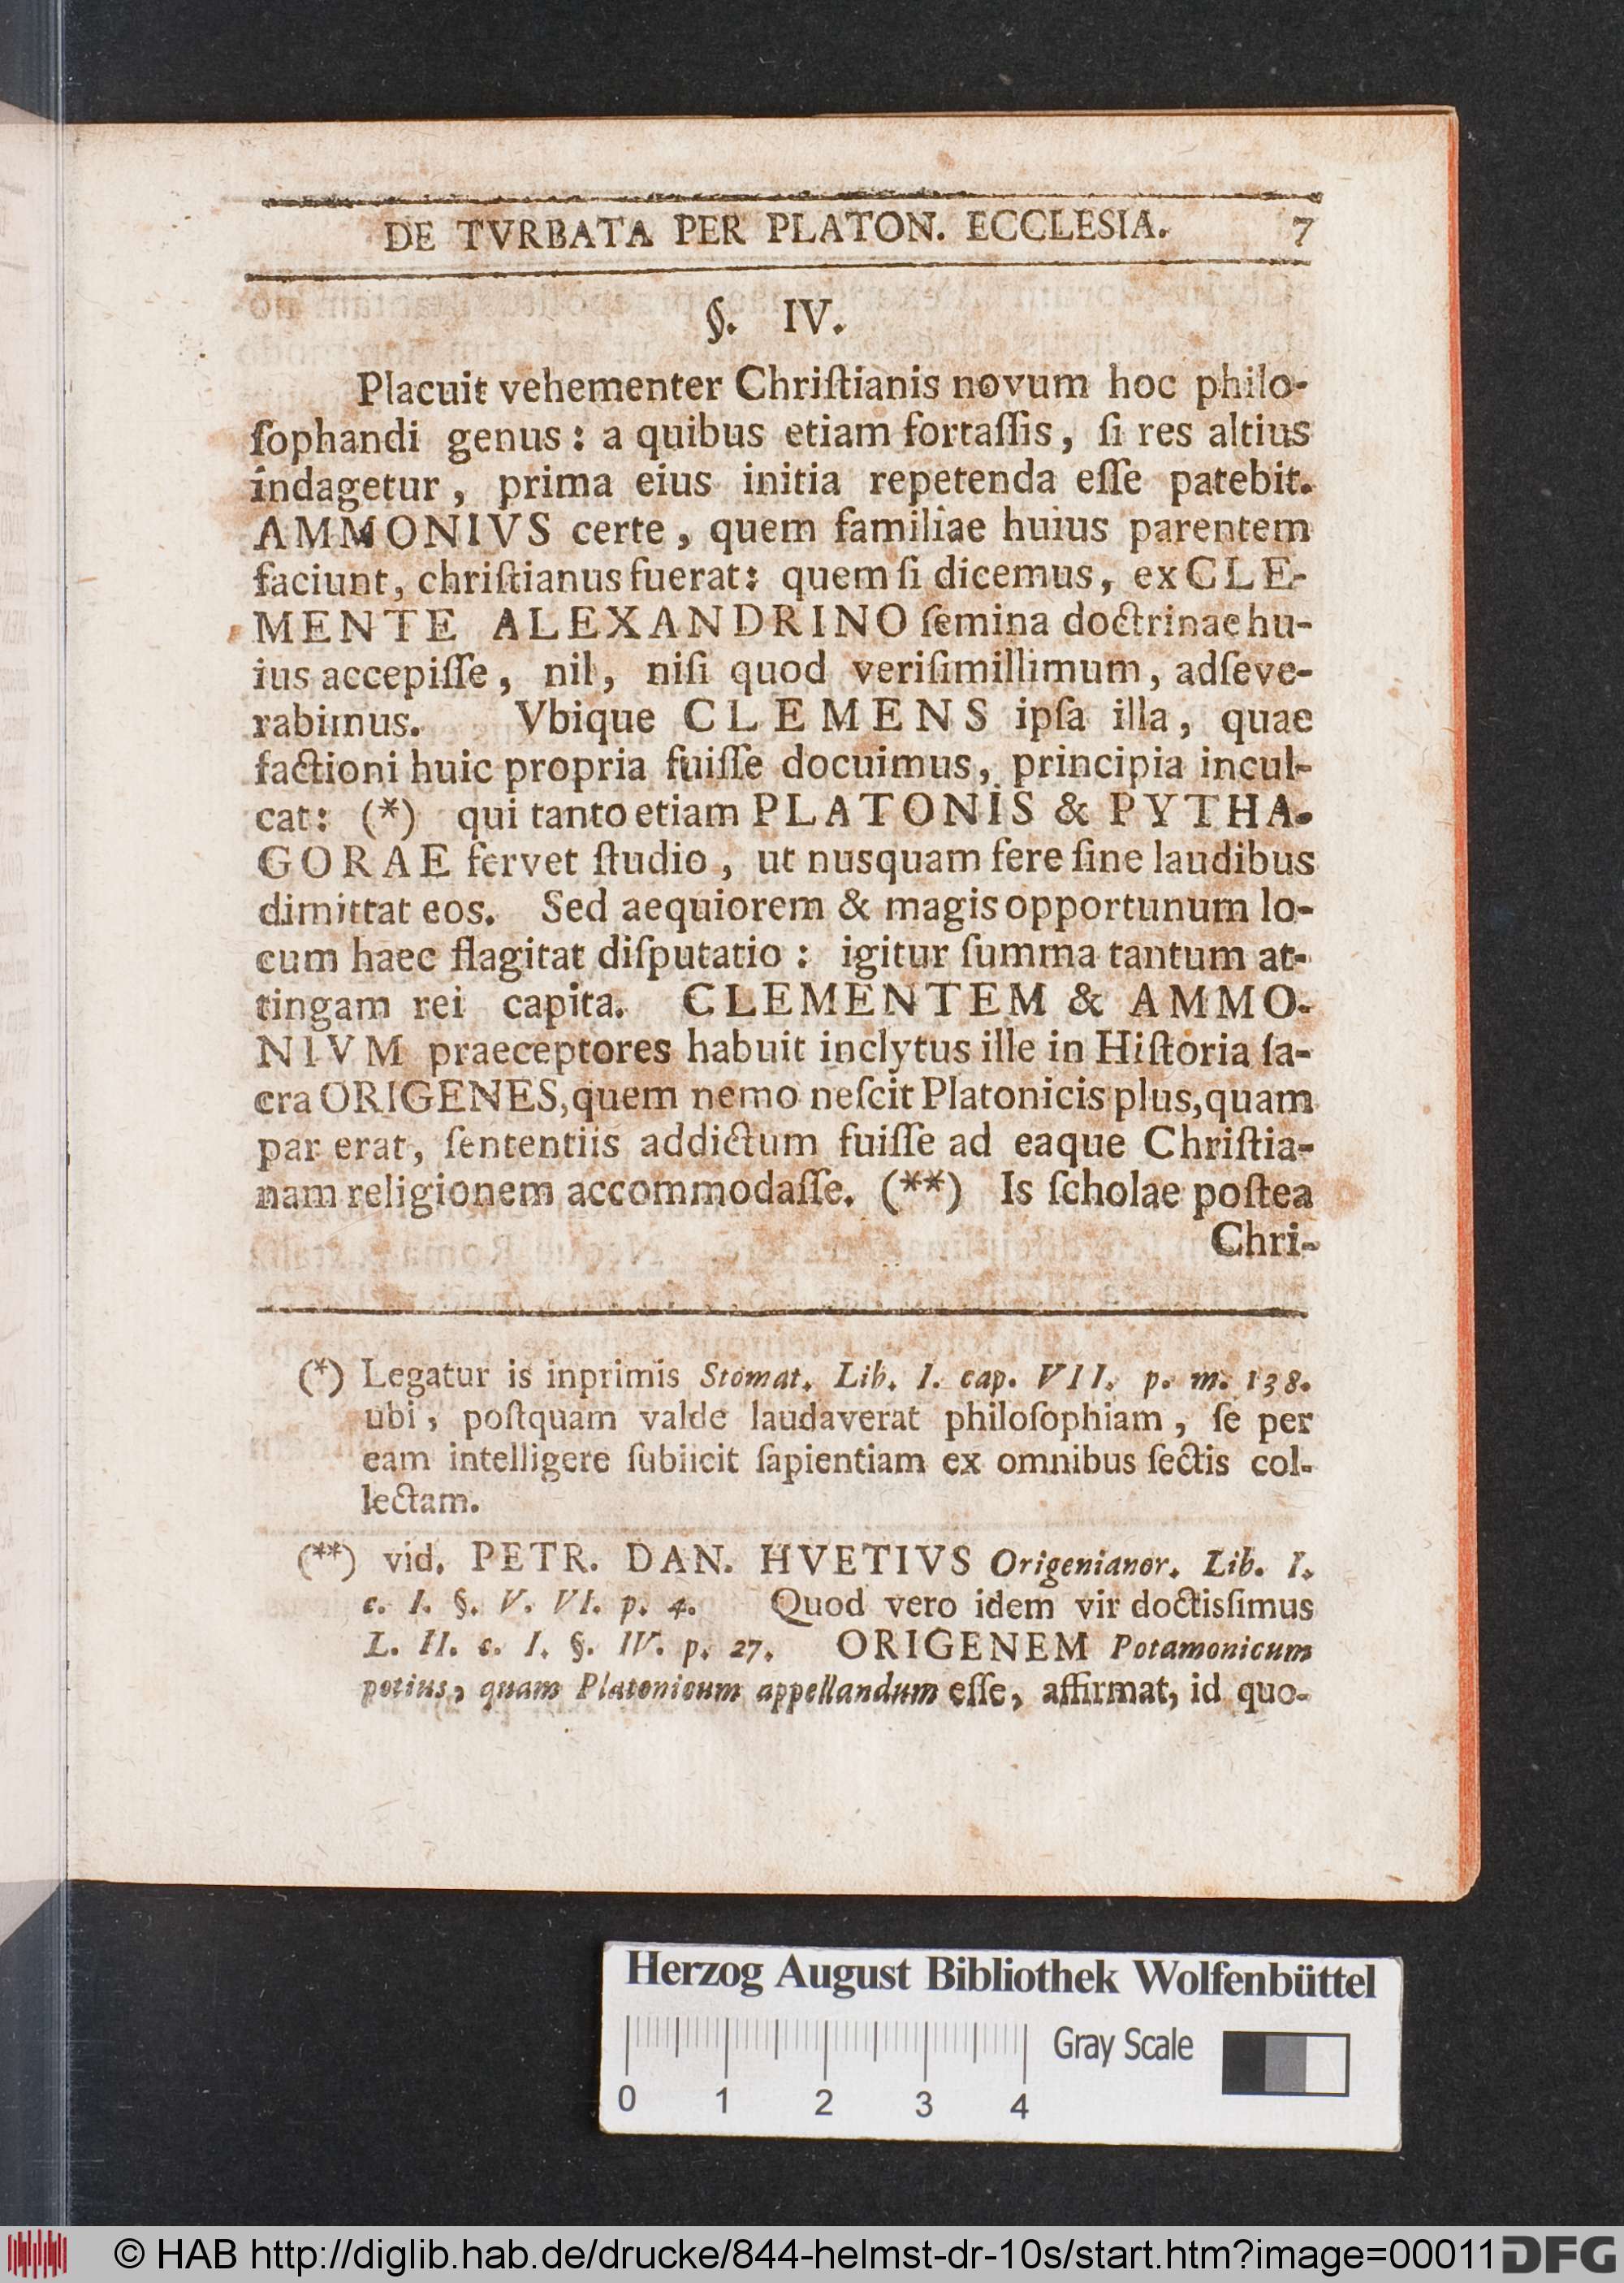 DE TVRBATA PER PLATON. ECCLESIA. 7
§. IV.
Placuit vehementer Chriſtianis novum hoc philo-
ſophandi genus: a quibus etiam fortaſſis, ſi res altius
indagetur, prima eius initia repetenda eſſe patebit.
AMMONIVS certe, quem familiae huius parentem
faciunt, chriſtianus fuerat: quem ſi dicemus, ex CLE-
MENTE ALEXANDRINO ſemina doctrinae hu-
ius accepiſſe, nil, niſi quod veriſimillimum, adſeve-
rabimus. Vbique CLEMENS ipſa illa, quae
factioni huic propria fuiſſe docuimus, principia incul-
cat: (*) qui tanto etiam PLATONIS & PYTHA-
GORAE fervet ſtudio, ut nusquam fere ſine laudibus
dimittat eos. Sed aequiorem & magis opportunum lo-
cum haec flagitat diſputatio: igitur ſumma tantum at-
tingam rei capita. CLEMENTEM & AMMO-
NIVM praeceptores habuit inclytus ille in Hiſtoria ſa-
cra ORIGENES, quem nemo neſcit Platonicis plus, quam
par erat, ſententiis addictum fuiſſe ad eaque Chriſtia-
nam religionem accommodaſſe. (**) Is ſcholae poſtea
Chri-
(*) Legatur is inprimis Stomat. Lib. I. cap. VII. p. m. 138.
ubi, poſtquam valde laudaverat philoſophiam, ſe per
eam intelligere ſubiicit ſapientiam ex omnibus ſectis col-
lectam.
(**) vid. PETR. DAN. HVETIVS Origenianor. Lib. I.
c. I. §. V. VI. p. 4. Quod vero idem vir doctisſimus
L. II. c. I. §. IV. p. 27. ORIGENEM Potamonicum
potius, quam Platonicum appellandum eſſe, affirmat, id quo-
Herzog August Bibliothek Wolfenbüttel
Gray Scale
0 1 2 3 4
© HAB http://diglib.hab.de/drucke/844-helmst-dr-10s/start.htm?image=00011 DFG